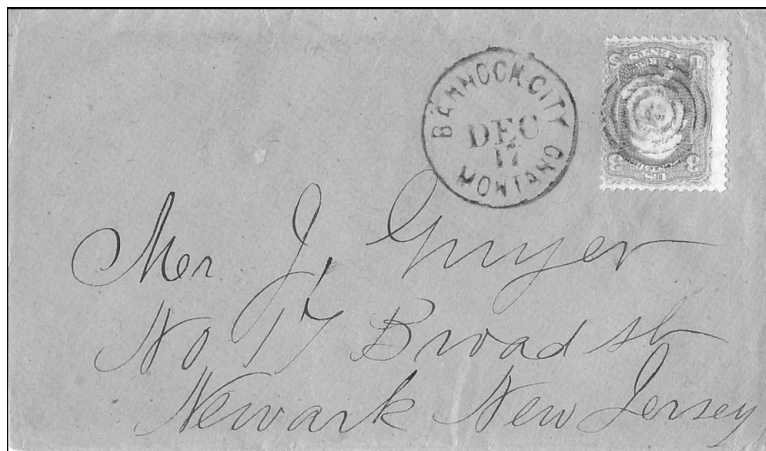 BANNOCK.CITY
DEC
17
MONTANO
3 U.S. 3
U S
Mr J, Guyer
No 17 Broad st
Newark New Jersey